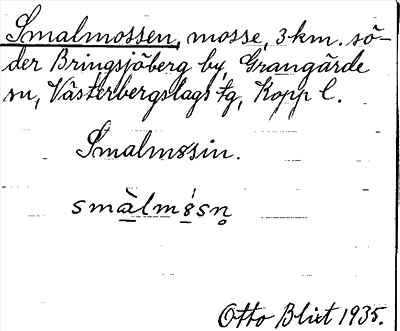 Smalmossen, mosse, 3 km. sö-
der Bringsjöberg by, Grangärde
sn, Västerbergslags tg, Kopp l.
Smalmssin.
smàlmsn̥
Otto Blixt 1935.